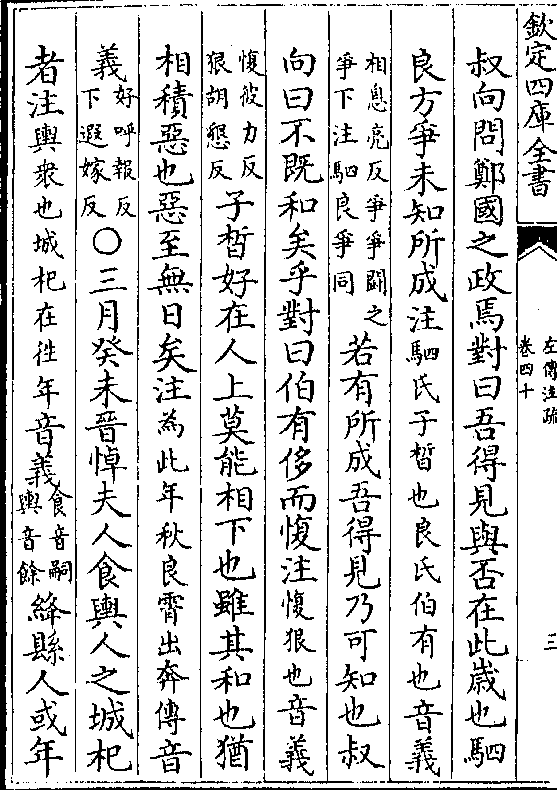 欽定四庫全書
左傳注疏
卷四十
三
叔向問鄭國之政焉對曰吾得見與否在此嵗也駟
良方爭未知所成注駟氏子晳也良氏伯有也音義
相息亮反爭爭鬭之
爭下注駟良爭同
若有所成吾得見乃可知也叔
向曰不既和矣乎對曰伯有侈而愎注愎狠也音義
愎彼力反
狠胡懇反
子晳好在人上莫能相下也雖其和也猶
相積惡也惡至無日矣注為此年秋良霄出奔傳音
義
好呼報反
下遐嫁反
○三月癸未晉悼夫人食輿人之城杞
者注輿衆也城杞在徃年音義
食音嗣
輿音餘
絳縣人或年